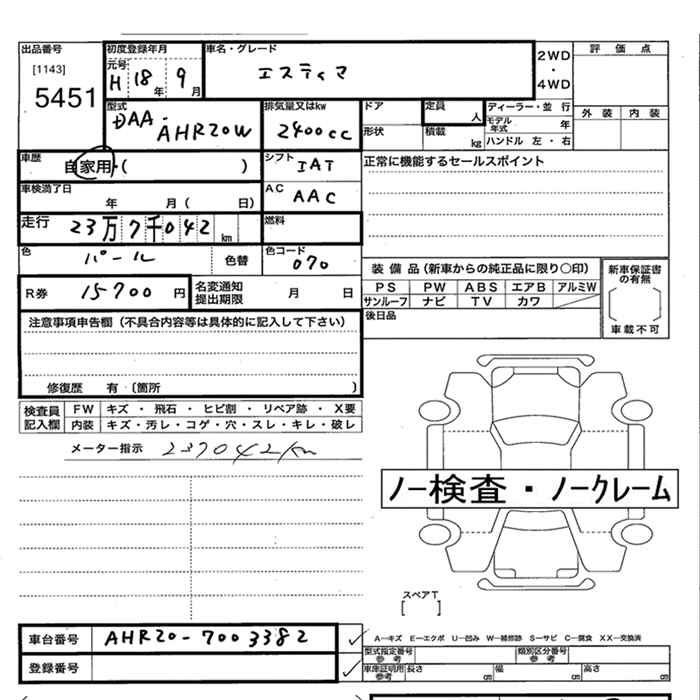 出品番号 初度登録年月 車名・グレード 2WD・4WD 評価点
[1143] 元号 H 18年 9月 エスティマ
5451 外装 内装
型式 DAA-AHR20W 排気量又はkw 2400cc ドア 定員 人 ディーラー・並行
形状 積載 kg モデル年式 年
ハンドル 左・右
車歴 自家用・( ) シフト IAT 正常に機能するセールスポイント
車検満了日 年 月( 日) AC AAC
走行 23万7千042km 燃料
色 パール 色替 色コード 070
装備品(新車からの純正品に限り○印) 新車保証書の有無
R券 15700円 名変通知提出期限 月 日
PS PW ABS エアB アルミW
サンルーフ ナビ TV カワ
車載不可
後日品
注意事項申告欄(不具合内容等は具体的に記入して下さい)
修復歴 有(箇所 )
検査員記入欄 FW キズ・飛石・ヒビ割・リペア跡・X要
内装 キズ・汚レ・コゲ・穴・スレ・キレ・破レ
メーター指示 237042km
ノー検査・ノークレーム
スペアT
[ ]
車台番号 AHR20-7003382
A―キズ E―エクボ U―凹み W―補修跡 S―サビ C―腐食 XX―交換済
型式指定番号 参考 類別区分番号 参考
登録番号 車庫証明用 参考 長さ cm 幅 cm 高さ cm